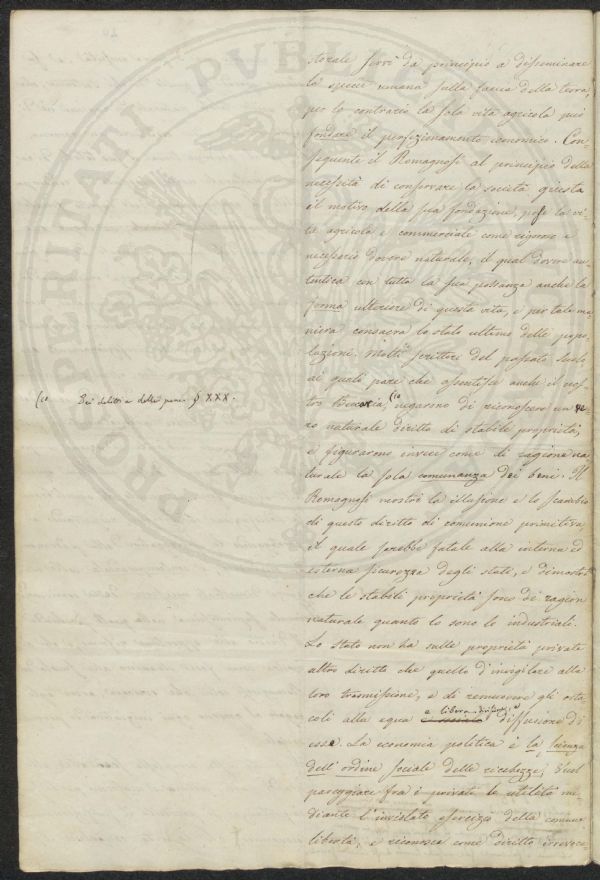 storale servì da principio a disseminare
la specie umana sulla faccia della terra,
per lo contrario la sola vita agricola può
fondare il perfezionamento economico. Con-
seguente il Romagnosi al principio della
necessità di conservare la società, questa
il motivo della sua fondazione, pose la vi-
ta agricola e commerciale come rigoroso e
necessario dovere naturale, il qual dovere au-
tentica con tutta la sua possanza anche la
forma ulteriore di questa vita, e per tale ma-
niera consacra lo stato ultimo delle popo-
lazioni. Molti scrittori del passato secolo
ai quali pare che assentisse anche il nos-
tro Beccaria, (1) negarono di riconoscere un ve-
ro naturale diritto di stabile proprietà,
e figurarono invece come di ragione na-
turale la sola comunanza dei beni. Il
Romagnosi mostrò la illusione e lo scambio
di questo diritto di comunione primitiva,
il quale sarebbe fatale alla interna ed
esterna sicurezza degli stati, e dimostrò
che le stabili proprietà sono di ragion
naturale quanto lo sono le industriali.
Lo stato non ha sulle proprietà private
altro diritto che quello d'invigilare alla
loro trasmissione, e di remuovere gli osta-
coli alla equa e libera diffusione di
esse. La economia politica è la scienza
dell'ordine sociale delle ricchezze; vuol
pareggiare fra i privati le utilità me-
diante l'inviolato esercizio della comune
libertà, e riconosce come diritto irrevoca-
(1) Dei delitti e delle pene § XXX.
PROSPERITATI PVBLICAE